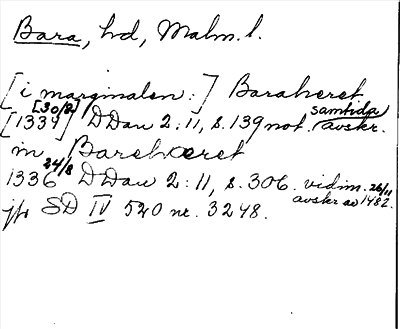 Bara, hd, Malm. l.
[i marginalen:] Baraheret
[30/8] samtida
[1334] DDan 2:11, s. 139 not. avskr.
in Bareheret
24/8
1336 DDan 2:11, s. 306. vidim. 26/11
avskr av 1482.
jfr SD IV 520 nr. 3248.